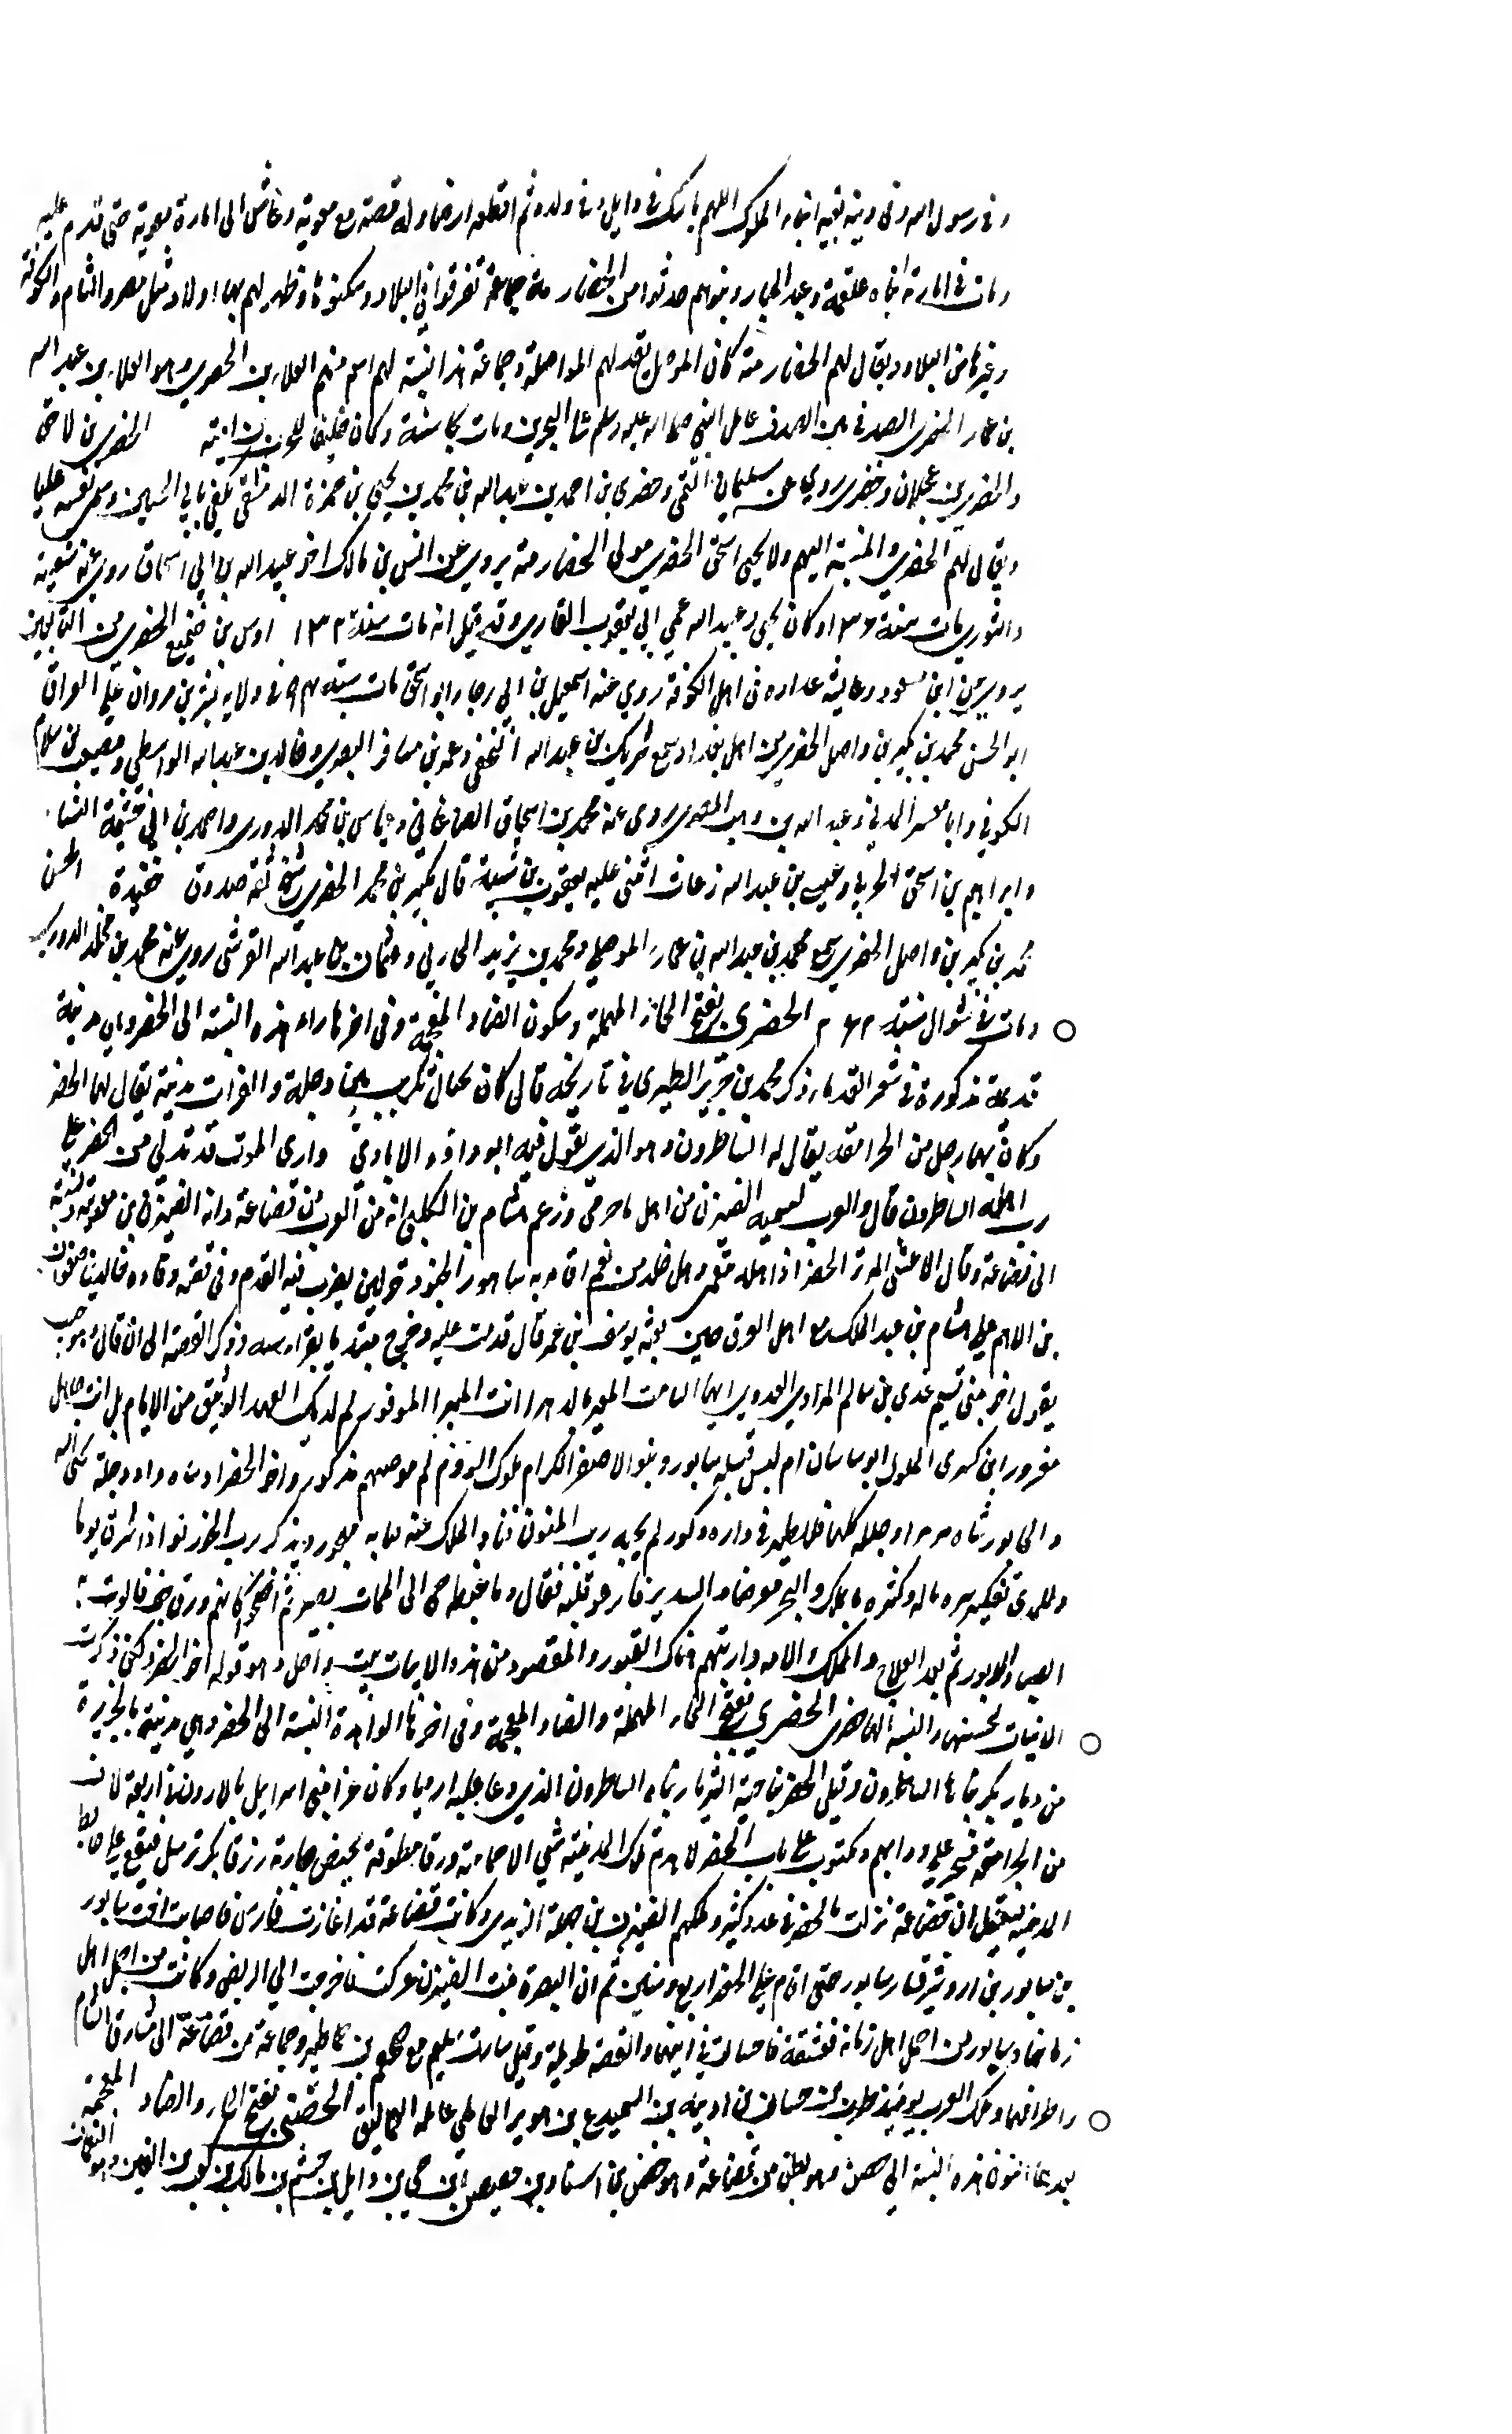 وفى رسول الله وفى دينه بقية ابناء الملوك اللهم بارك فى وايل و فى ولده ثم اقطعه ارضا وله قصة مع معوية وعاش الى امارة معوية حتى قدم عليه
ومات فى امارته ابناه علقمة وعبد الجبار وبنوهم حدثوا من الحضارمة جماعة تفرقوا فى البلاد وسكنوها وظهر لهم بها اولاد مثل مصر والشام والكوفة
وغيرها من البلاد ويقال لهم الحضارمة كان الموصل يقال لهم المواصلة وجماعة هذا نسبة لهم اسم منهم العلاء بن الحضرمى وهو العلاء بن عبد الله
بن عمار الحضرمى الصدفى من الصدف عامل النبى صلى الله عليه وسلم على البحرين ومات بها سنة وكان حليفا لحرب بن امية الحضرمى بن لاحق
والحضرمى بن عجلان وحضرمى يروى عن سليمان التيمى وحضرمى بن احمد بن عبد الله بن محمد بن يحيى بن حمزة الدمشقى يكنى بابى الحسين وسمى نفسه عليا
ويقال لهم الحضرمى والنسبة اليهم ولا يحيى اسحق الحضرمى مولى الحضارمة يروى عن انس بن مالك اخو عبيد الله بن ابى اسحاق روى عنه شعبة
والثورى مات سنة ١٣٦ وكان يحيى وعبيد الله عمى ابى يعقوب القارى وقد قيل انه مات سنة ١٣٢ اوس بن ضمعج الحضرمى من التابعين
يروى عن ابن مسعود وعايشة عداده فى اهل الكوفة روى عنه اسمعيل بن ابى رجاء وابو اسحق مات سنة فى ولاية بشر بن مروان على العراق
ابو الحسن محمد بن بكير بن واصل الحضرمى من اهل بغداد سمع شريك بن عبد الله النخعى وعمر بن مسافر البصرى وخالد بن عبد الله الواسطى ومصعب بن سلام
الكوفى وابا معشر المدنى وعبد الله بن وهب المصرى روى عنه محمد بن اسحاق الصاغانى وعباس بن محمد الدورى واحمد بن ابى خيثمة النسا
وابراهيم بن اسحق الحربى وخلف بن عبد الله زغات اثنى عليه يعقوب بن شيبة قال بكير بن محمد الحضرمى شيخ ثقة صدوق حفيده الحسن
محمد بن بكير بن واصل الحضرمى سمع محمد بن عبد الله بن عمار الموصلى ومحمد بن يزيد الحارثى وعثمان بن عبد الله القرشى روى عنه محمد بن مخلد الدورى
ومات فى شوال سنة ٢٦٢ الحضرى بفتح الحاء المهملة وسكون الضاد المعجمة وفى اخرها راء هذه النسبة الى الحضر وهى مدينة
قديمة مذكورة فى شعر القدماء ذكر محمد بن جرير الطبرى فى تاريخه قال كان بحيال تكريت بين دجلة والفرات مدينة يقال لها الحضر
وكان بها رجل من الجرامقة يقال له الساطرون وهو الذى يقول فيه ابو دواد الايادى وارى الموت قد تدلى من الحضر على
رب اهله الساطرون قال والعرب تسميه الضيزن من اهل باجرمى وزعم هشام بن الكلبى انه من العرب من قضاعة وانه الضيزن بن معوية ونسبه
الى قضاعة وقال الاعشى الم تر الحضر اذ اهله بنعمى وهل خلد من نعم اقام به ساهبور الجنود حولين يضرب فيه القدم وفى قصة وفادة خالد بن صفوان
بن الاهتم على هشام بن عبد الملك مع اهل العراق حين بعثه يوسف بن عمر قال قدمت عليه وخرج مبتديا بقرابته وذكر القصة الى ان قال وهو حيث
يقول اخو بنى تميم عدى بن سالم المرادى العدوى ايها الشامت المعير بالدهر اانت المبرا الموفور ام لديك العهد الوثيق من الايام بل انت جاهل
مغرور اين كسرى الملوك ابو ساسان ام اين قبله سابور وبنو الاصفر الكرام ملوك الروم لم يبق منهم مذكور واخو الحضر اذ بناه واذ دجلة تجبى اليه
والخابور شاده مرمرا وجلله كلسا فللطير فى ذراه وكور لم يهبه ريب المنون فباد الملك عنه فبابه مهجور وتذكر رب الخورنق اذ اشرف يوما
وللهدى تفكير سره ماله وكثرة ما يملك والبحر معرضا والسدير فارعوى قلبه فقال وما غبطة حى الى الممات يصير ثم اضحوا كانهم ورق جف فالوت به
الصبا والدبور ثم بعد الفلاح والملك والامة وارتهم هناك القبور والمقصود من هذه الابيات بيت واحد وهو قوله اخو الحضر ولكنى ذكرت
الابيات لحسنها والنسبة اليها حضرى الحضرى بفتح الحاء المهملة والضاد المعجمة وفى اخرها الراء هذه النسبة الى الحضر وهى مدينة بالجزيرة
من ديار بكر بناها الساطرون وقيل الحضر بناحية الثرثار بناه الساطرون الذى دعا عليه ارميا وكان غزا بنى اسرايل بالاردون فى اربعة الاف
من الجرامقة على دوابهم ومكتوب على باب الحضر لا يهدم تلك المدينة شى الا حمامة ورقا مطوقة بحيض جارية زرقا بكر ترسل فتقع على حايط
المدينة وقيل ان قضاعة نزلت بالحضر فى عدد كثير وملكهم الضيزن بن جبلة التزيدى وكانت قضاعة قد اغارت بفارس فاصابت اخت سابور
بن سابور بن اردشير فسار سابور حتى اقام على الحضر اربع سنين ثم ان النضيرة بنت الضيزن عركت فاخرجت الى الربض وكانت من اجمل اهل
زمانها وسابور من اجمل اهل زمانه فعشقته فاحتالت فى ابيها والقصة طويلة وقيل سارت سليح مع بن وجماعة من قضاعة الى مشارق الشام
واطرافها وملك العرب يوميذ ظرب بن حسان بن اذينة بن السميدع بن هوبر العاملى عاملة العماليق الحضنى بفتح الحاء والضاد المعجمة
بعدها النون هذه النسبة الى حضن وهو بطن من قضاعة وهو حضن بن اسناد بن مصيص بن حى بن وايل بن جشم بن مالك بن كعب بن القين وهو النعمان